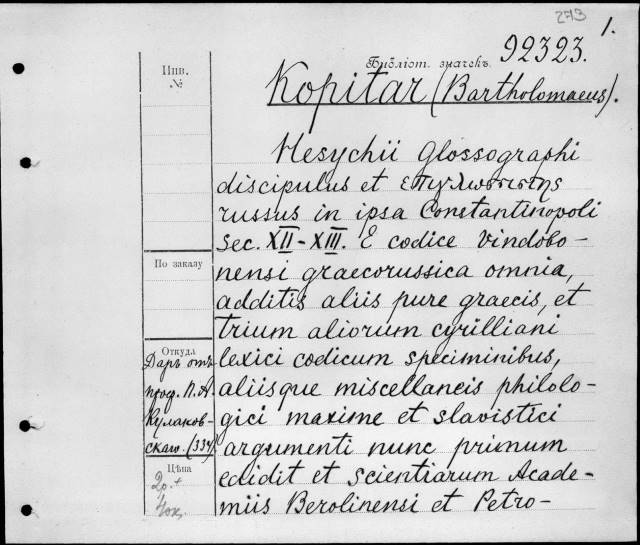 273
1.
92323.
Библіот. значекъ.
Kopitar (Bartholomaeus).
Инв. №
Hesychii Glossographi
discipulus et επιγλωσσιστης
russus in ipsa Constantinopoli
sec. XII-XIII. E codice Vindobo-
nensi graecorussica omnia,
По заказу
additis aliis pure graecis, et
trium aliorum cyrilliani
lexici codicum speciminibus,
aliisque miscellaneis philolo-
gici maxime et slavistici
argumenti nunc primum
edidit et scientiarum Acade-
miis Berolinensi et Petro-
Откуда
Даръ отъ
проф. П. А.
Кулаков-
скаго. (334).
Цѣна
2р. +
40к.